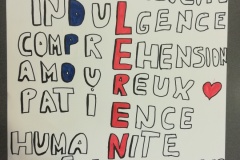 INDULGENCE
COMPREHENSION
AMOUREUX
PATIENCE
HUMANITE